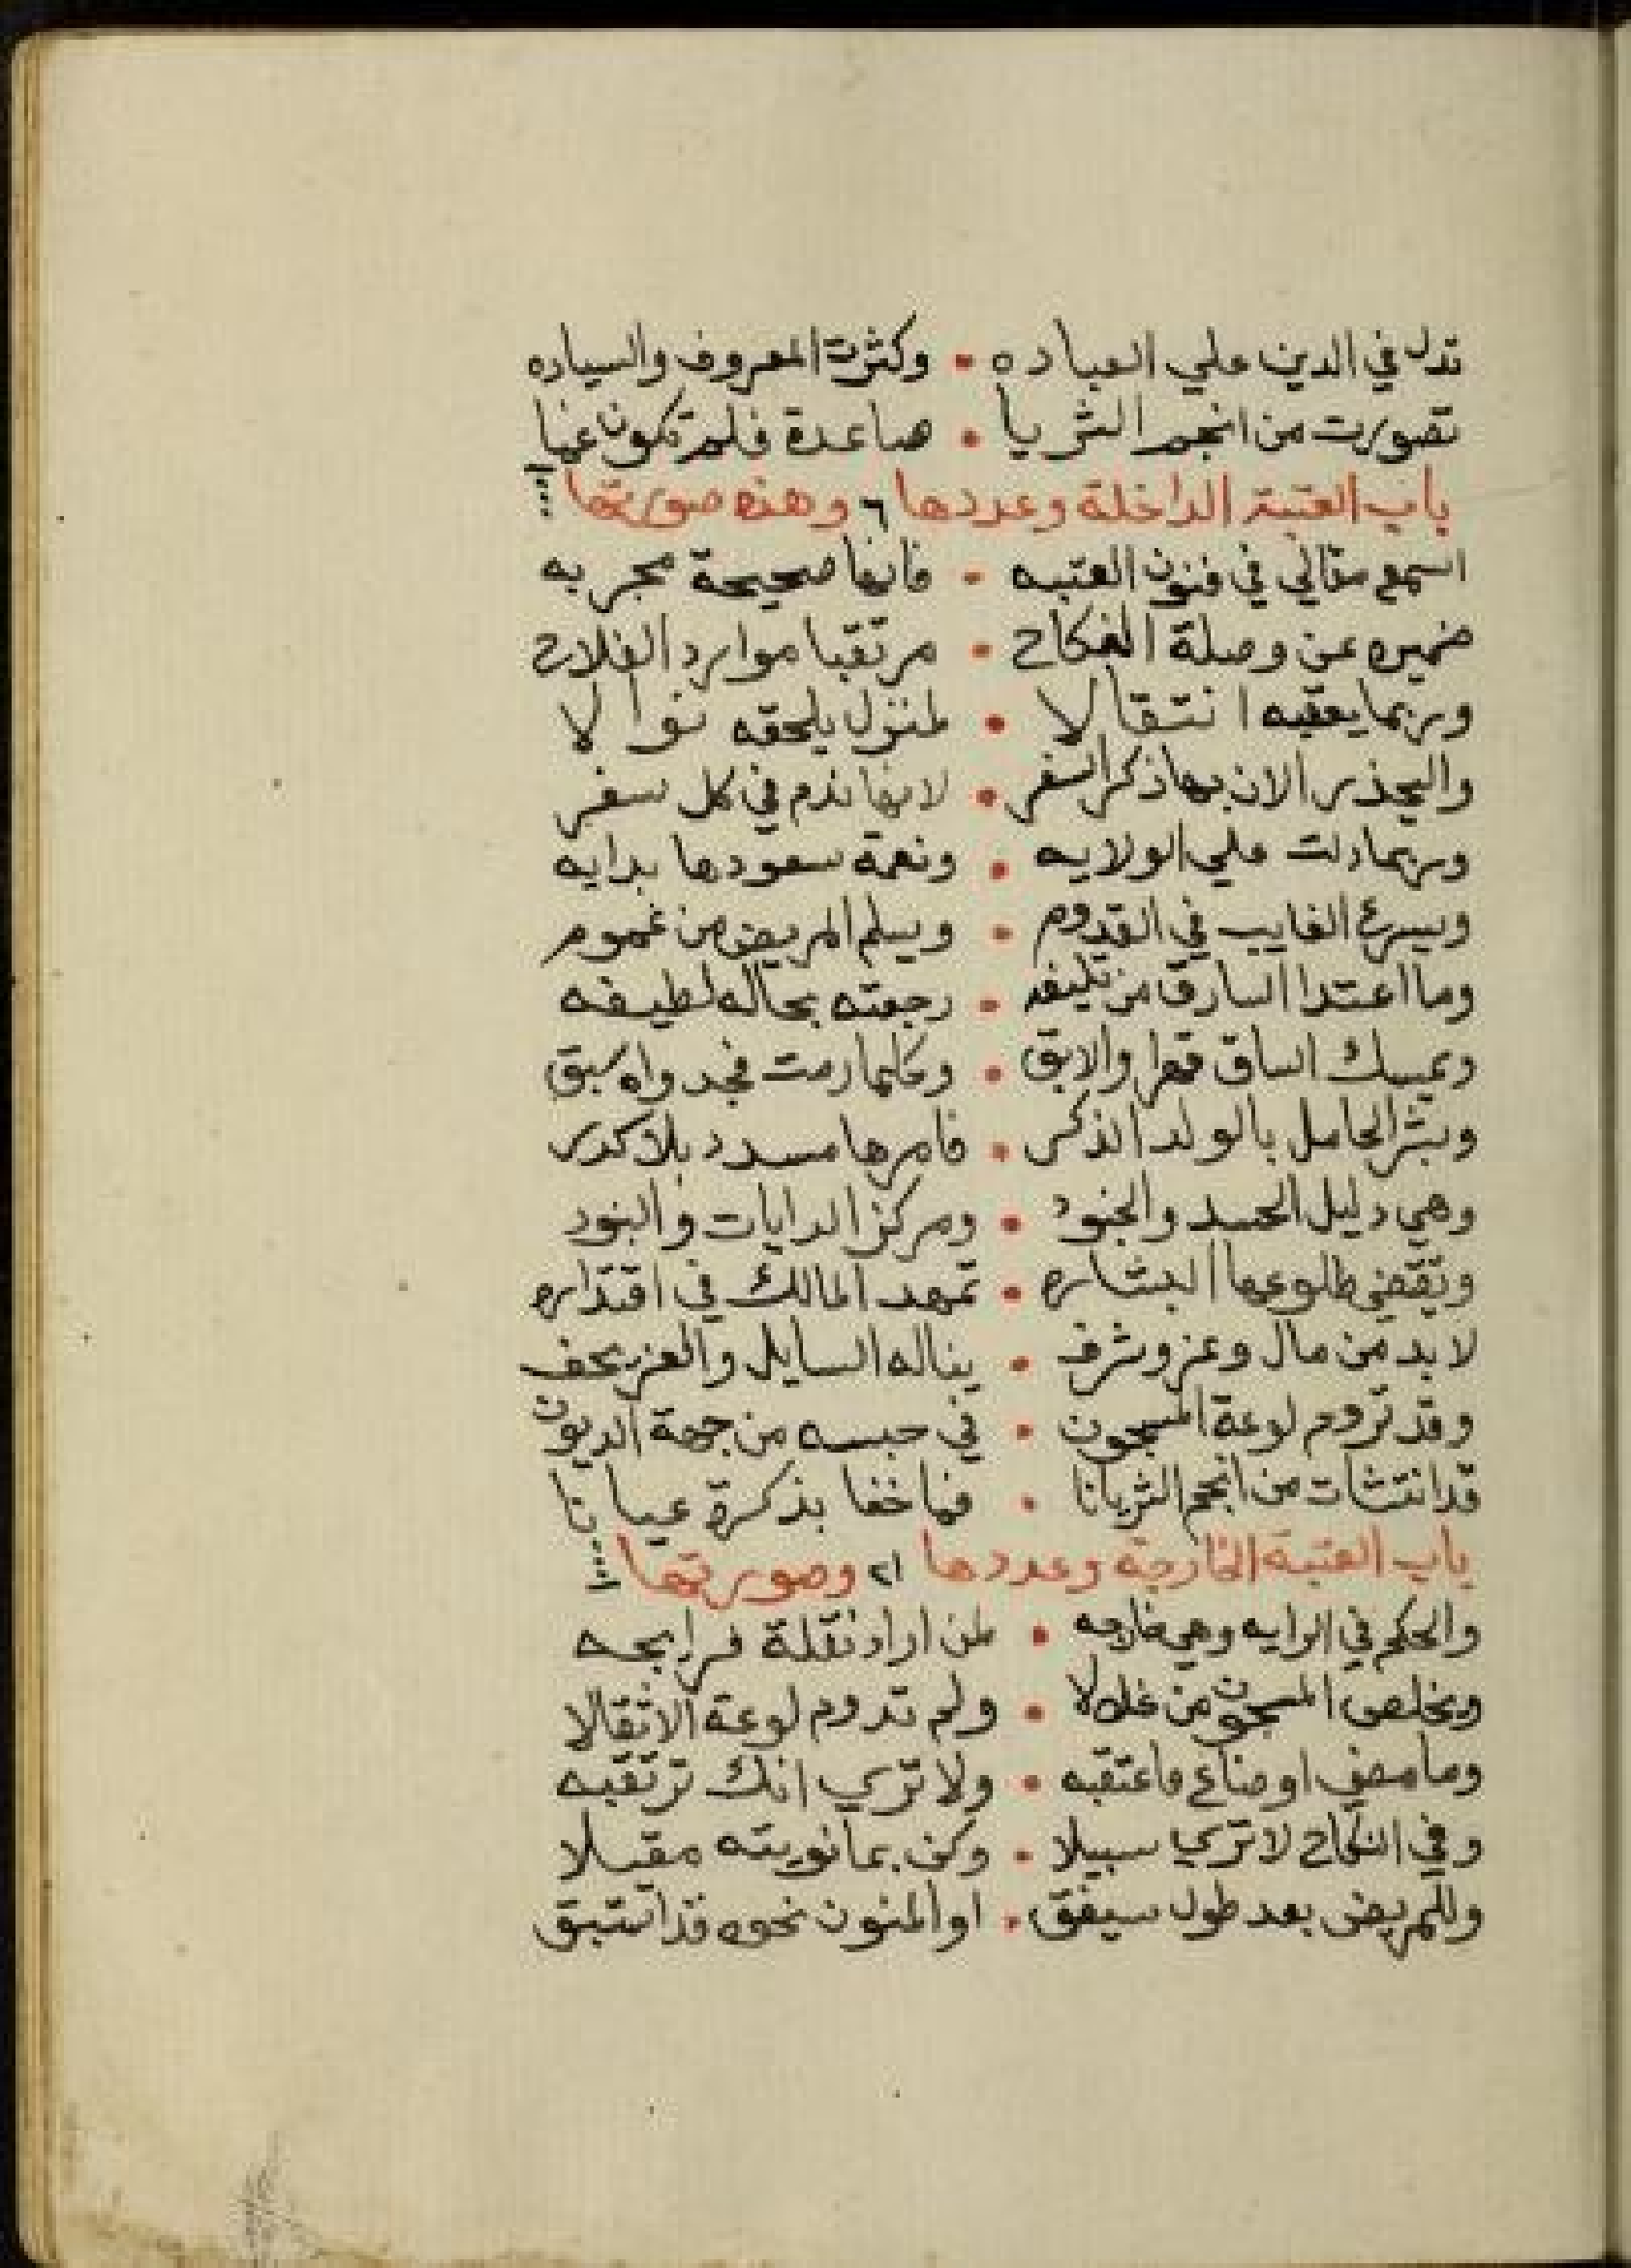 تدل في الدين علي العباده • وكثرت المعروف والسياده
تصورت من انجم الثريا • صاعدة فلم تكون غيا
باب العتبة الداخلة وعددها ٦ وهذه صورتها
اسمع مقالي في فنون العتبه • فانها صحيحة مجربه
ضميره عن وصلة النكاح • مرتقبا موارد الفلاح
وربما يعقبه انتقالا • لمنزل يلحقه نوالا
واليحذر الان بها ذكر السفر • لانها تذم في كل سفر
وربما دلت علي الولايه • ونعمة سعودها بدايه
ويسرع الغايب في القدوم • ويسلم المريض من غموم
وما اعتدا السارق من • رجعته بحاله لطيفه
ويمسك الساق قهرا والابق • وكلما رمت فجد واه سبق
وبشر الحامل بالولد الذكر • فامرها مسدد بلا كدر
وهي دليل الحسد والجنود • ومركز الرايات والبنود
وتقتضي طلوعها البشاره • تمهد المالك في اقتداره
لا بد من مال وعز وشرف • يناله السايل والعز يحف
وقد تروم لوعة المسجون • في حبسه من جهة الديون
قد انتشات من انجم الثريانا • فما خفا بذكرة عيانا
باب العتبة الخارجة وعددها ٢١ وصورتها
والحكم في الرايه وهي خارجه • لمن اراد نقلة فرايجه
ويخلص المسجون من غلالا • ولم تدوم لوعة الاتقالا
وما مضي او ضاع فاعتقبه • ولا تري انك ترتقبه
وفي النكاح لا تري سبيلا • وكن بما نويته مقبلا
وللمريض بعد طول سيفق • او المنون نحوه قد استبق